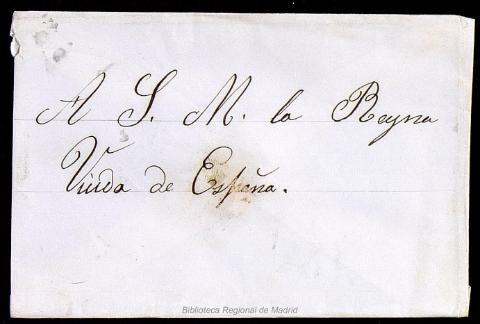 A S. M. la Reyna
Viuda de España.
Biblioteca Regional de Madrid